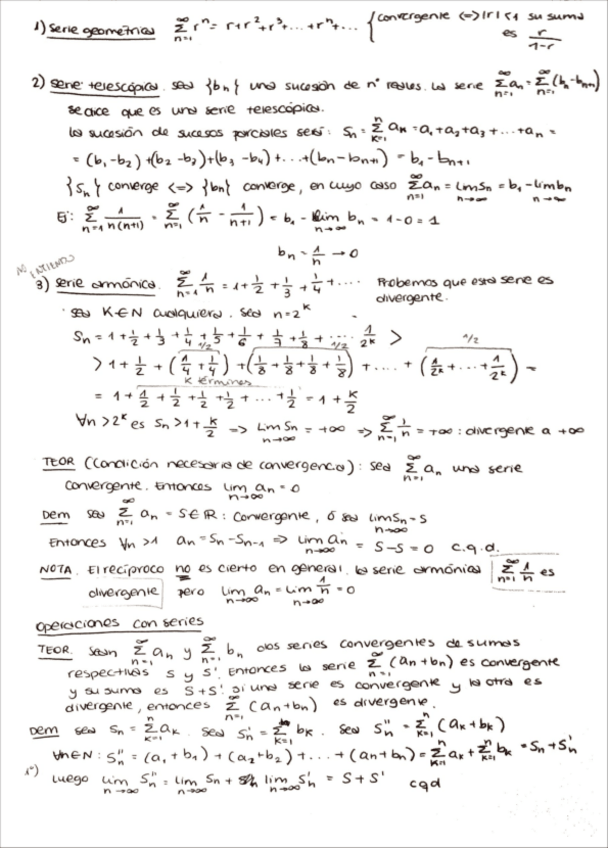 1) Serie geométrica ∑_{n=1}^∞ r^n = r+r²+r³+...+r^n+... { convergente <=> |r|<1 su suma es r/(1-r)
2) Serie telescópica. Sea {bn} una sucesión de nº reales. La serie ∑_{n=1}^∞ an = ∑_{n=1}^∞ (bn-bn+1)
se dice que es una serie telescópica.
La sucesión de sumas parciales será: Sn = ∑_{k=1}^n ak = a1+a2+a3+...+an =
= (b1-b2)+(b2-b3)+(b3-b4)+...+(bn-bn+1) = b1-bn+1
{Sn} converge <=> {bn} converge, en cuyo caso ∑_{n=1}^∞ an = lim_{n→∞} Sn = b1 - lim_{n→∞} bn
Ej: ∑_{n=1}^∞ 1/n(n+1) = ∑_{n=1}^∞ (1/n - 1/(n+1)) = b1 - lim_{n→∞} bn = 1-0 = 1
bn = 1/n → 0
NO ENTIENDO
3) Serie armónica. ∑_{n=1}^∞ 1/n = 1+1/2+1/3+1/4+.... Probemos que esta serie es
divergente.
Sea K∈N cualquiera. Sea n=2^k
Sn = 1+1/2+1/3+1/4+1/5+1/6+1/7+1/8+... 1/2^k >
> 1+1/2+(1/4+1/4)+(1/8+1/8+1/8+1/8)+....+(1/2^k+...+1/2^k) =
1/2 1/2 1/2
K términos
= 1+1/2+1/2+1/2+1/2+...+1/2 = 1+K/2
∀n>2^k es Sn>1+K/2 => lim_{n→∞} Sn = +∞ => ∑_{n=1}^∞ 1/n = +∞ : divergente a +∞
TEOR (Condición necesaria de convergencia): Sea ∑_{n=1}^∞ an una serie
convergente. Entonces lim_{n→∞} an = 0
Dem Sea ∑_{n=1}^∞ an = S∈R : Convergente, ó sea lim Sn = S
Entonces ∀n>1 an = Sn-Sn-1 => lim_{n→∞} an = S-S = 0 c.q.d.
NOTA. El recíproco no es cierto en general. La serie armónica ∑_{n=1}^∞ 1/n es
divergente pero lim_{n→∞} an = lim_{n→∞} 1/n = 0
Operaciones con series
TEOR. Sean ∑_{n=1}^∞ an y ∑_{n=1}^∞ bn dos series convergentes de sumas
respectivas S y S'. Entonces la serie ∑_{n=1}^∞ (an+bn) es convergente
y su suma es S+S'. Si una serie es convergente y la otra es
divergente, entonces ∑_{n=1}^∞ (an+bn) es divergente.
Dem Sea Sn = ∑_{k=1}^n ak. Sea S'n = ∑_{k=1}^n bk. Sea S''n = ∑_{k=1}^n (ak+bk)
∀n∈N: S''n = (a1+b1)+(a2+b2)+...+(an+bn) = ∑_{k=1}^n ak + ∑_{k=1}^n bk = Sn+S'n
1º) Luego lim_{n→∞} S''n = lim_{n→∞} Sn + lim_{n→∞} S'n = S+S' cqd